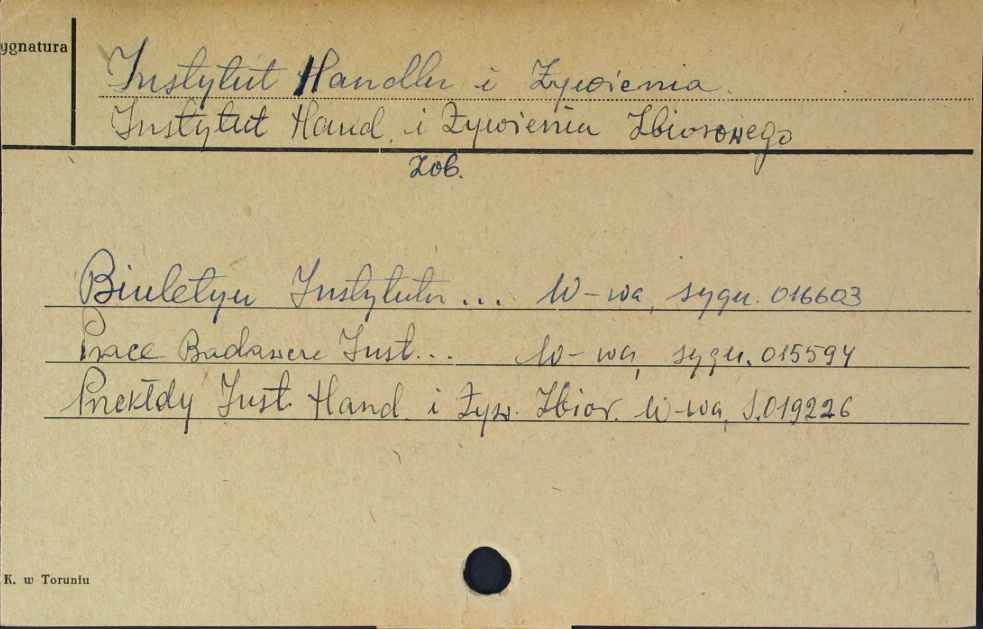 ygnatura
Instytut Handlu i Żywienia.
Instytut Hand. i Żywienia Zbiorowego
zob.
Biuletyn Instytutu... W-wa, sygn. 016603
Prace Badawcze Inst... W-wa, sygn. 015594
Przekłdy Inst. Hand. i Żyw. Zbior. W-wa, S.019226
K. w Toruniu